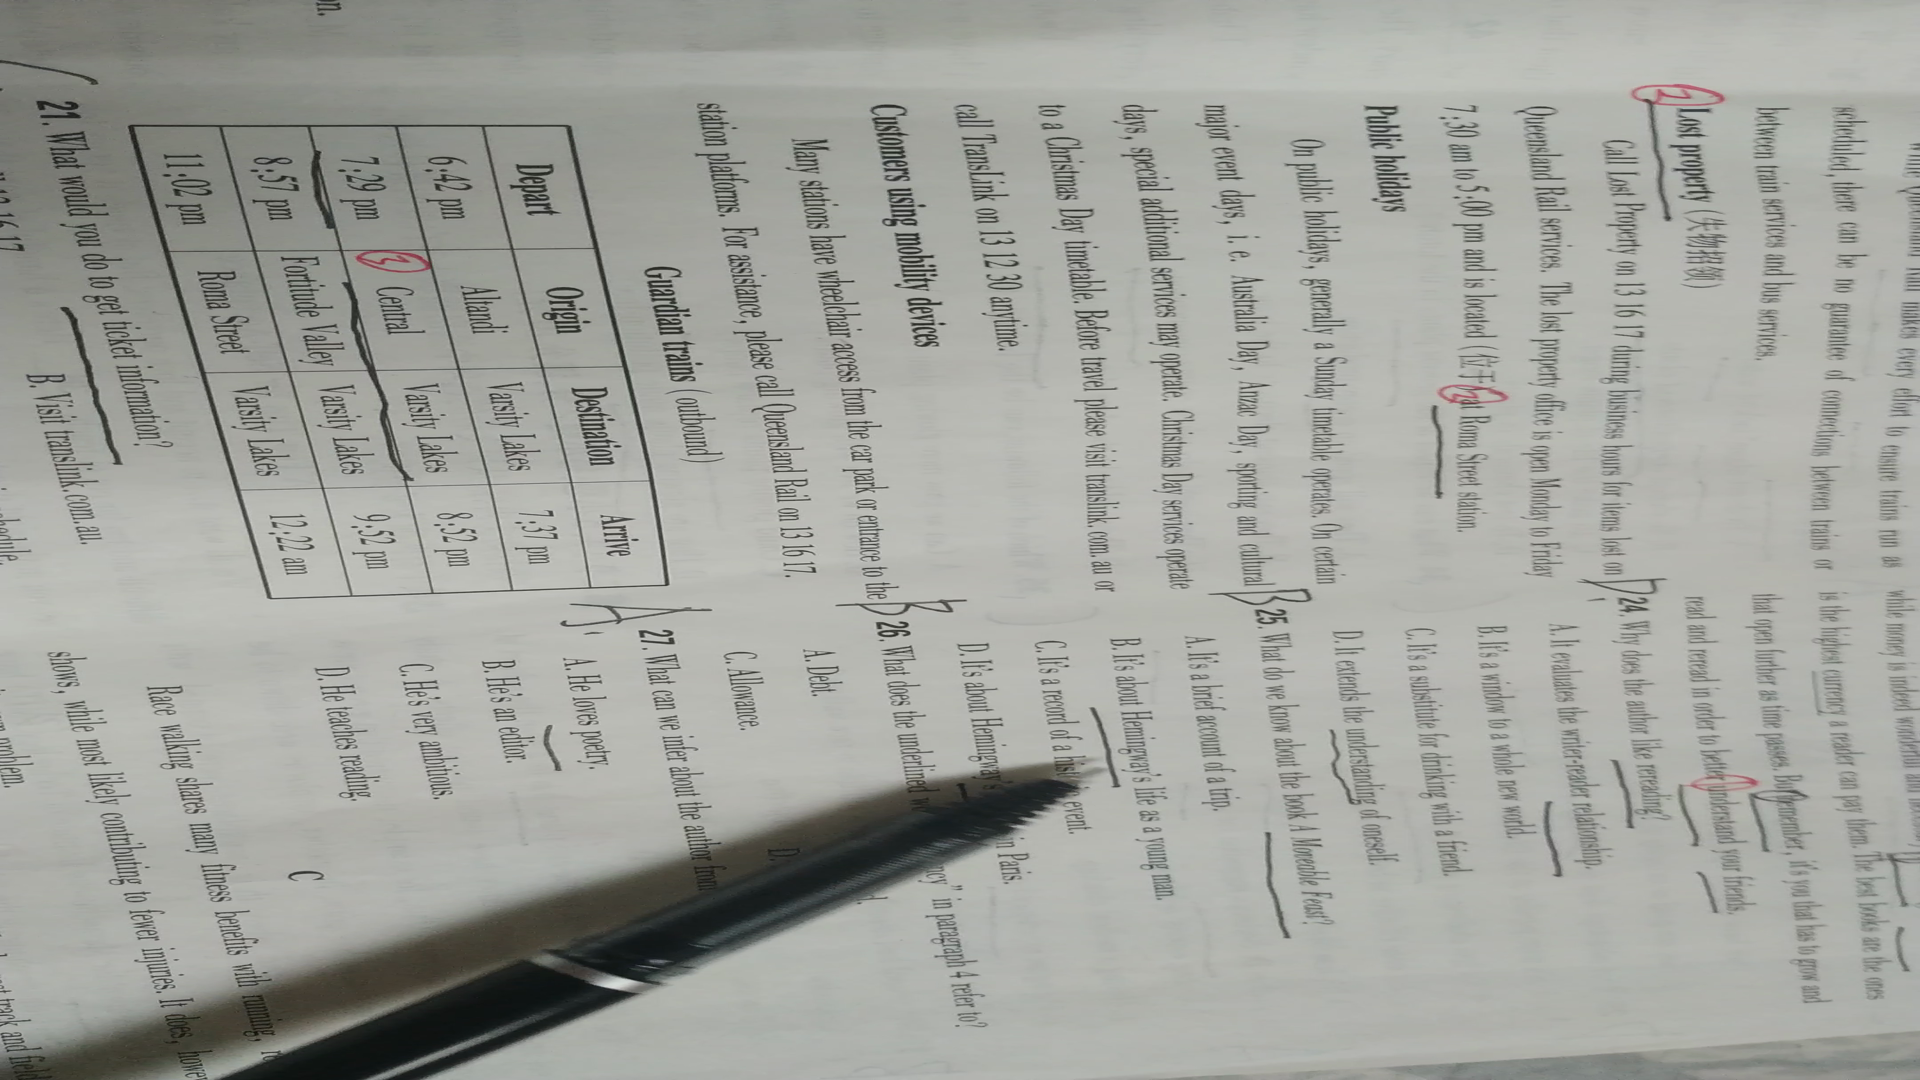 makes every effort to ensure trains run as
scheduled, there can be no guarantee of connections between trains or
between train services and bus services.
② Lost property (失物招领)
Call Lost Property on 13 16 17 during business hours for items lost on
Queensland Rail services. The lost property office is open Monday to Friday
7:30 am to 5:00 pm and is located (位于) at Roma Street station.
Public holidays
On public holidays, generally a Sunday timetable operates. On certain
major event days, i. e. Australia Day, Anzac Day, sporting and cultural
days, special additional services may operate. Christmas Day services operate
to a Christmas Day timetable. Before travel please visit translink. com. au or
call TransLink on 13 12 30 anytime.
Customers using mobility devices
Many stations have wheelchair access from the car park or entrance to the
station platforms. For assistance, please call Queensland Rail on 13 16 17.
Guardian trains (outbound)
Depart Origin Destination Arrive
6:42 pm Altandi Varsity Lakes 7:37 pm
7:29 pm Central Varsity Lakes 8:52 pm
8:57 pm Fortitude Valley Varsity Lakes 9:52 pm
11:02 pm Roma Street Varsity Lakes 12:22 am
21. What would you do to get ticket information?
B. Visit translink.com.au.
while money is indeed wonderful and
is the highest currency a reader can pay them. The best books are the ones
that open further as time passes. But remember, it's you that has to grow and
read and reread in order to better understand your friends.
D 24. Why does the author like rereading?
A. It evaluates the writer-reader relationship.
B. It's a window to a whole new world.
C. It's a substitute for drinking with a friend.
D. It extends the understanding of oneself.
B 25. What do we know about the book A Moveable Feast?
A. It's a brief account of a trip.
B. It's about Hemingway's life as a young man.
C. It's a record of a event.
D. It's about Hemingway's in Paris.
B 26. What does the underlined in paragraph 4 refer to?
A. Debt.
C. Allowance. D.
A 27. What can we infer about the author from
A. He loves poetry.
B. He's an editor.
C. He's very ambitious.
D. He teaches reading.
C
Race walking shares many fitness benefits with running,
shows, while most likely contributing to fewer injuries. It does,
problem.
track and field